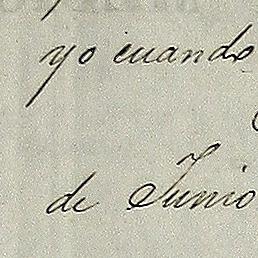 yo cuando
de Junio